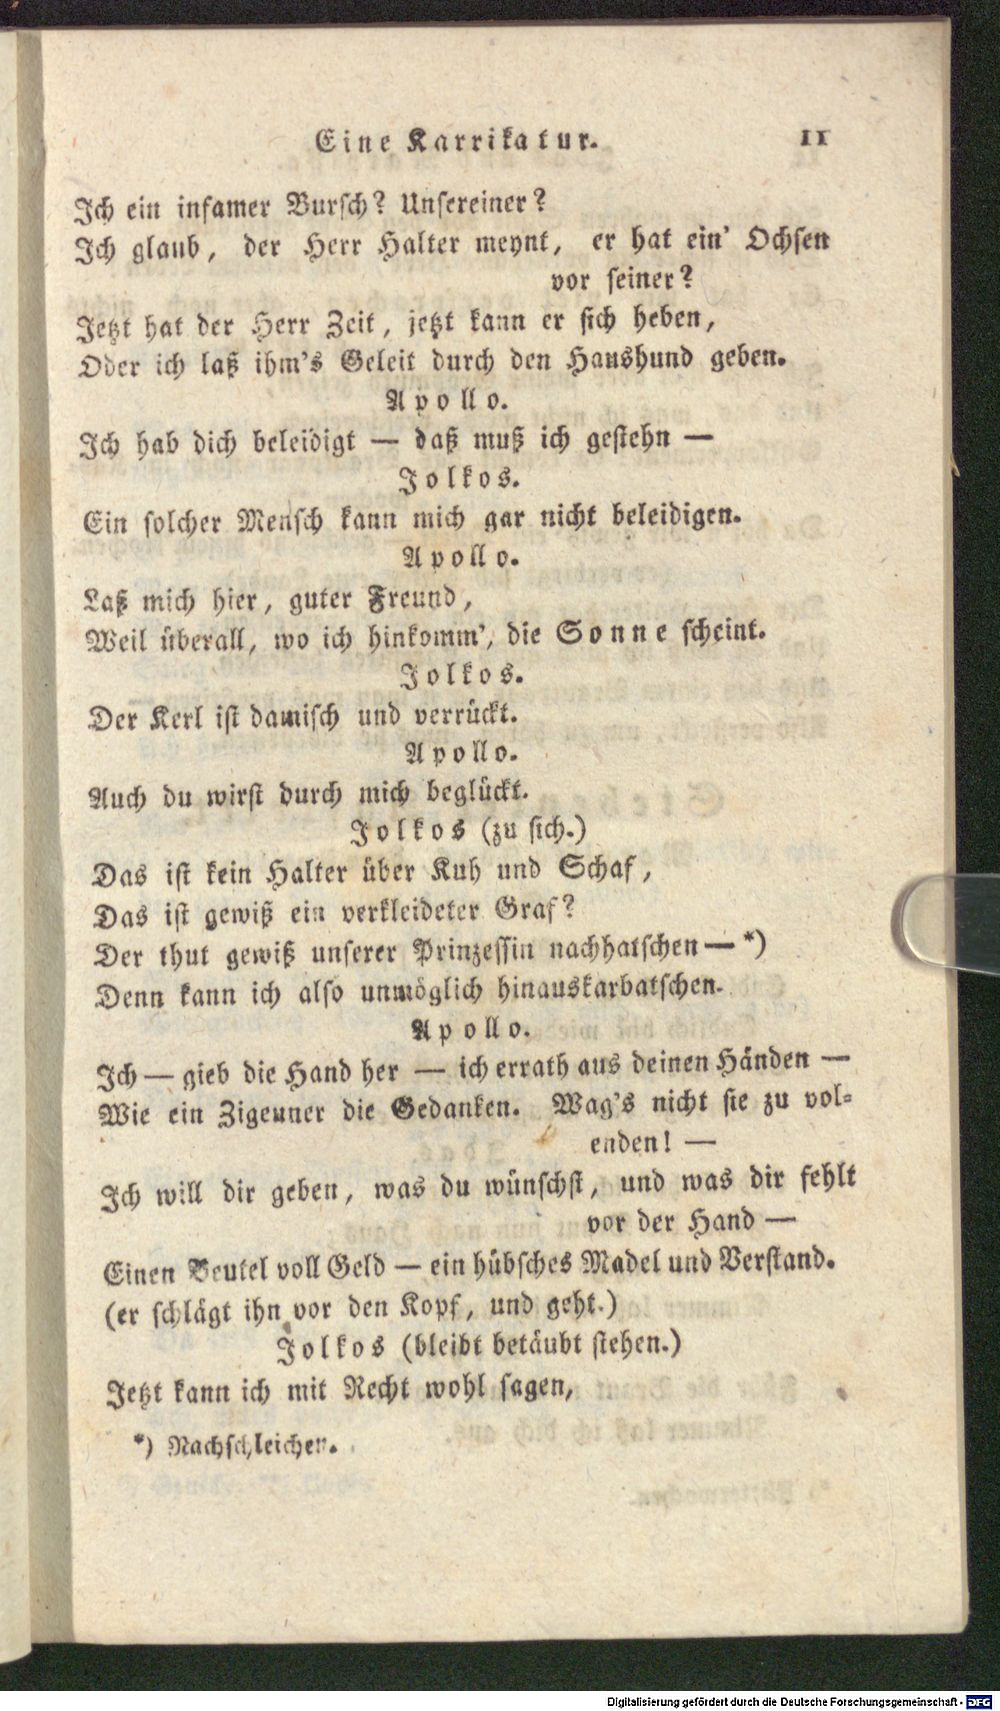 Eine Karrikatur. 11
Ich ein infamer Bursch? Unsereiner?
Ich glaub, der Herr Halter meynt, er hat ein' Ochsen
vor seiner?
Jetzt hat der Herr Zeit, jetzt kann er sich heben,
Oder ich laß ihm's Geleit durch den Haushund geben.
Apollo.
Ich hab dich beleidigt — daß muß ich gestehn —
Jolkos.
Ein solcher Mensch kann mich gar nicht beleidigen.
Apollo.
Laß mich hier, guter Freund,
Weil überall, wo ich hinkomm', die Sonne scheint.
Jolkos.
Der Kerl ist damisch und verrückt.
Apollo.
Auch du wirst durch mich beglückt.
Jolkos (zu sich.)
Das ist kein Halter über Kuh und Schaf,
Das ist gewiß ein verkleideter Graf?
Der thut gewiß unserer Prinzessin nachhatschen — *)
Denn kann ich also unmöglich hinauskarbatschen.
Apollo.
Ich — gieb die Hand her — ich errath aus deinen Händen —
Wie ein Zigeuner die Gedanken. Wag's nicht sie zu vol-
enden! —
Ich will dir geben, was du wünschst, und was dir fehlt
vor der Hand —
Einen Beutel voll Geld — ein hübsches Madel und Verstand.
(er schlägt ihn vor den Kopf, und geht.)
Jolkos (bleibt betäubt stehen.)
Jetzt kann ich mit Recht wohl sagen,
*) Nachschleichen.
Digitalisierung gefördert durch die Deutsche Forschungsgemeinschaft - DFG